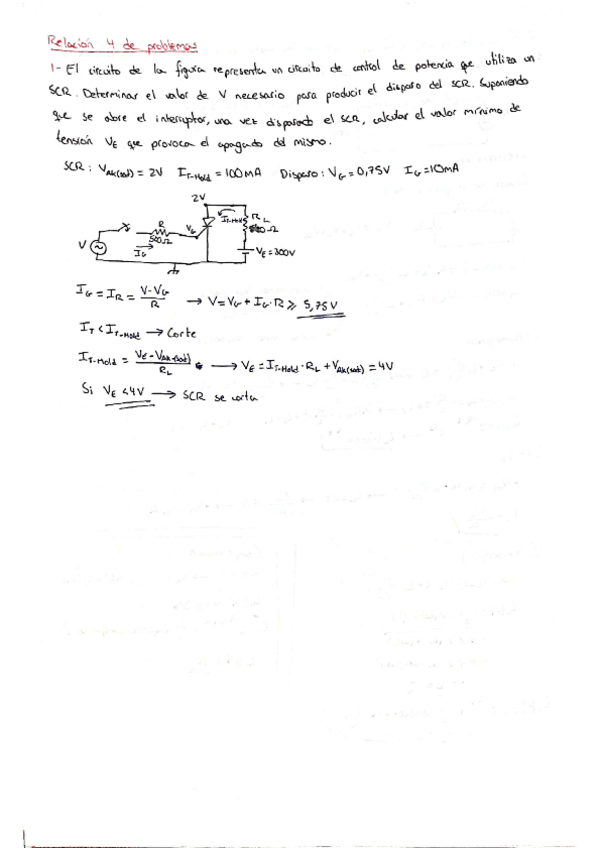 Relación 4 de problemas
1- El circuito de la figura representa un circuito de control de potencia que utiliza un
SCR. Determinar el valor de V necesario para producir el disparo del SCR. Suponiendo
que se abre el interruptor, una vez disparado el SCR, calcular el valor mínimo de
tensión VE que provoca el apagado del mismo.
SCR: VAK(sat) = 2V IT-Hold = 100mA Disparo: VG = 0,75V IG = 10mA
2V
R
500Ω
VG
IT-Hold
RL
V
IG
VE = 300V
IG = IR = V-VG / R → V = VG + IG·R ≥ 5,75V
IT < IT-Hold → Corte
IT-Hold = VE - VAK(sat) / RL → VE = IT-Hold · RL + VAK(sat) = 4V
Si VE < 4V → SCR se corta